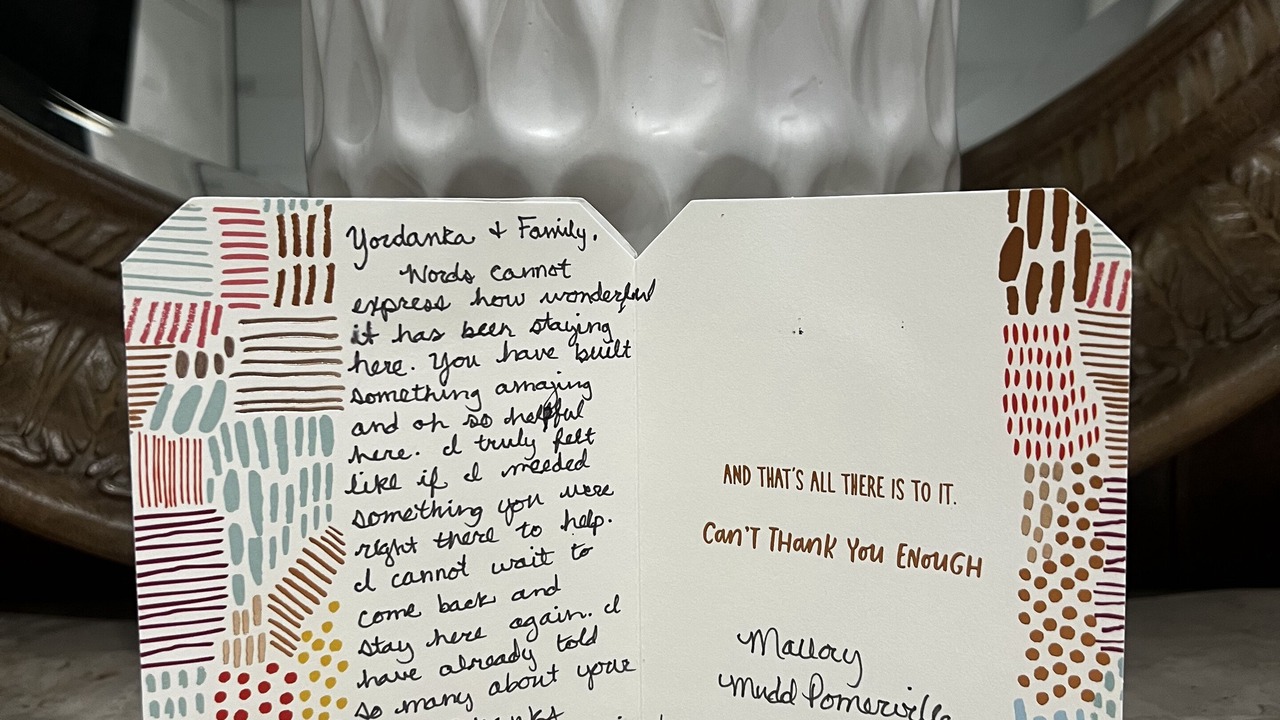 Yordanka & Family,
Words cannot
express how wonderful
it has been staying
here. You have built
something amazing
and oh so helpful
here. I truly felt
like if I needed
something you were
right there to help.
I cannot wait to
come back and
stay here again. I
have already told
so many about your
AND THAT'S ALL THERE IS TO IT.
CAN'T THANK YOU ENOUGH
Mallory
Mudd Pomerville